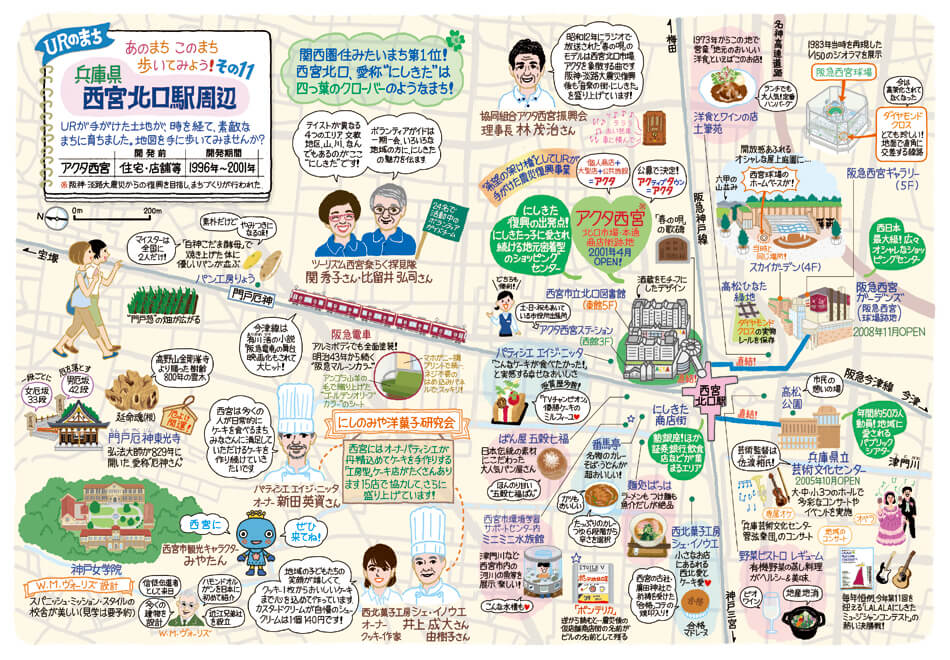 URのまち
あのまち このまち
歩いてみよう!その11
兵庫県
西宮北口駅周辺
URが手がけた土地が、時を経て、素敵な
まちに育ちました。地図を手に歩いてみませんか?
開発前
開発期間
アクタ西宮
住宅・店舗等
1996年~2001年
※阪神・淡路大震災からの復興を目指し、まちづくりが行われた
N
0m
200m
関西圏住みたいまち第1位!
西宮北口、愛称“にしきた”は
四つ葉のクローバーのようなまち!
テイストが異なる
4つのエリア。文教
地区、山、川、なん
でもあるのが“ここ
にしきた”です!
ボランティアガイドは
一期一会。いろいろな
地域の方に、にしきた
の魅力を伝えます
24名で
活動中の
ボランティア
ガイドチーム
ツーリズム西宮楽らく探見隊
関 秀子さん・比留井 弘司さん
昭和12年にラジオで
放送された「春の唄」の
モデルは西宮北口市場。
アクタを象徴する曲です
阪神・淡路大震災復興
後も“音楽の街・にしきた”を
盛り上げています!
協同組合アクタ西宮振興会
理事長 林 茂治さん
梅田
名神高速道路
阪急神戸線
1973年からこの地で
営業。「地元のおいしい
洋食といえばこのお店!」
ランチでも
大人気!定番
ハンバーグ
洋食とワインの店
土筆苑
1983年当時を再現した
1/150のジオラマを展示
阪急西宮球場
今は
高架化されて
なくなった
ダイヤモンド
クロス
とても珍しい!
地面で直角に
交差する線路
阪急西宮ギャラリー
(5F)
希望の架け橋としてURが
手がけた震災復興事業
個人商店+
大型店+公共施設
=アクタ
公募で決定!
アクティブ+タウン
=アクタ
アクタ西宮
北口市場・本通
商店街跡地
2001年4月
OPEN!
にしきた
復興の出発点!
にしきたっ子に愛され
続ける地元密着型
のショッピング
センター
「春の唄」
の歌碑
開放感あふれる
オシャレな屋上庭園に…
六甲の
山並み
西宮球場の
ホームベースが!
当時と
同じ場所!
スカイガーデン(4F)
西日本
最大級!広々
オシャレなショッ
ピングセンター
阪急西宮
ガーデンズ
(阪急西宮
球場跡地)
2008年11月OPEN
高松ひなた
緑地
ダイヤモンド
クロスの実物
レールを保存
直結!
直結!
直結!
酒蔵をモチーフに
したデザイン
西宮市立北口図書館
(東館5F)
どちらも
便利!
土・日・祝もあいて
いる市役所出張所
アクタ西宮ステーション
(西館3F)
宝塚
マイスターは
全国に
2人だけ!
素朴だけど
やみつきに
なる味
「白神こだま酵母」で
焼き上げた 体に
優しいパンが並ぶ
パン工房りょう
“門戸葱”の畑が広がる
門戸厄神
今津線は
有川浩の小説
『阪急電車』の舞台
映画化もされて
大ヒット!
阪急電車
アルミボディでも全面塗装!
明治43年から続く
「阪急マルーンカラー」
アンゴラ山羊の
毛で織り上げた
“ゴールデンオリーブ
カラー”のシート
高野山金剛峯寺
より賜った樹齢
800年の霊木
厄よけ
開運!
延命魂(根)
一段ごとに
厄を落とす
男厄坂
42段
女厄坂
33段
門戸厄神東光寺
弘法大師が829年に
開いた“愛称”厄神さん”
西宮は多くの
人が日常的に
ケーキを食べるまち
みなさんに満足して
いただけるケーキを
作り続けていき
たいです
パティシエ エイジ・ニッタ
オーナー 新田 英資さん
にしのみや洋菓子研究会
西宮にはオーナーパティシエが
丹精込めてケーキを手作りする
“工房型”ケーキ店がたくさんあり
ます 15店で協力して、さらに
盛り上げています!
パティシエ エイジ・ニッタ
「こんなケーキが食べたかった!」
と実感する幸せなおいしさ
受賞歴多数!
「TVチャンピオン」
優勝ケーキの
ミルフィーユ
西宮北口駅
阪急今津線
今津
高松
公園
市民の
憩いの場
にしきた
商店街
動銀座!ほか
証券銀行、飲食
店などが集
まるエリア
ぱん屋 五穀七福
日本伝統の素材
にこだわった
大人気パン屋さん
ほんのり甘い
“五穀七福ぱん”
番馬亭
名物のカレー
そば・うどんが
超おいしい!
ガツリと
おいしい
たっぷりのカレー
つゆ 6段階から
辛さを選択
麺処 ぱちは
ラーメンもつけ麺も
魚介だしが絶品
年間約50万人
動員!地域に愛
されるパブリック
シアター
津門川
芸術監督は
佐渡裕氏
兵庫県立
芸術文化センター
2005年10月OPEN
大・中・小3つのホールで
多彩なコンサートや
イベントを実施
専属オケ
オペラ
兵庫芸術文化センター
管弦楽団のコンサート
地域の
コンサート
神戸女学院
W.M.ヴォーリズ設計
スパニッシュ・ミッション・スタイルの
校舎が美しい(見学は要予約)
西宮に
ぜひ
来てね!
西宮市観光キャラクター
みやたん
信徒伝道者
として来日
ハモンドオル
ガンを日本に
初めて紹介
多くの
建物を
設計
近江兄弟社
を設立
W・M・ヴォーリズ
地域の子どもたちの
笑顔が嬉しくて
クッキー1枚からおいしいケーキ
まで「心」を込めて作っています
カスタードクリームが自慢のシュー
クリームは1個140円です!
西北菓子工房 シェ・イノウエ
オーナー 井上 成大さん
クッキー作家 由樹子さん
西宮市環境学習
サポートセンター内
ミニミニ水族館
津門川など
西宮市内の
河川の魚等を
展示。楽しい!
こんな水槽も
「ポンテリカ」
逆から読むと…震災後の
仮設商店街の名前が
ビルの名前として残る
西北菓子工房
シェ・イノウエ
小さなお店
にあふれる
西北愛と
ケーキ愛
西宮の古社・
廣田神社で
お祈願を受けた
“合格”コテの
焼印入り!
合格
マドレーヌ
神戸三宮
野菜ビストロ レギューム
有機野菜の蒸し料理
がヘルシー&美味
ビオ
ワイン
地産地消
毎年恒例、今年第11回を
迎える「LALALAにしきた
ミュージシャンコンテスト」の
熱い決勝戦!